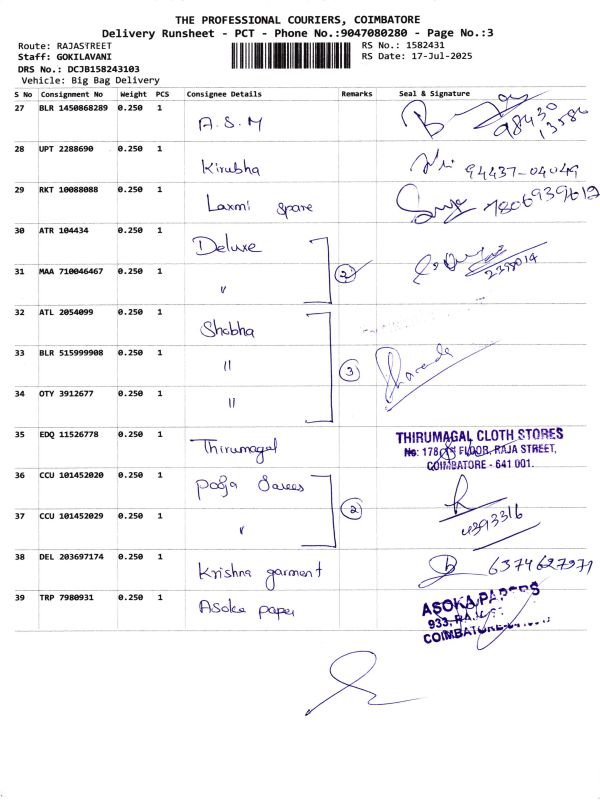 THE PROFESSIONAL COURIERS, COIMBATORE
Delivery Runsheet - PCT - Phone No.:9047080280 - Page No.:3
Route: RAJASTREET RS No.: 1582431
Staff: GOKILAVANI RS Date: 17-Jul-2025
DRS No.: DCJB158243103
Vehicle: Big Bag Delivery
S No Consignment No Weight PCS Consignee Details Remarks Seal & Signature
27 BLR 1450868289 0.250 1 A.S.M 98430
13586
28 UPT 2288690 0.250 1 Kirubha 94437-04049
29 RKT 10088088 0.250 1 Laxmi spare 7806939612
30 ATR 104434 0.250 1 Deluxe
31 MAA 710046467 0.250 1 " 2 2398014
32 ATL 2054099 0.250 1 Shobha
33 BLR 515999908 0.250 1 " 3
34 OTY 3912677 0.250 1 "
35 EDQ 11526778 0.250 1 Thirumagal THIRUMAGAL CLOTH STORES
No: 178, FLOOR, RAJA STREET,
COIMBATORE - 641 001.
36 CCU 101452020 0.250 1 Pooja Sarees
37 CCU 101452029 0.250 1 " 2 4393316
38 DEL 203697174 0.250 1 Krishna garment 6374627971
39 TRP 7980931 0.250 1 Asoka paper ASOKA PAPERS
933, RAJA
COIMBATORE